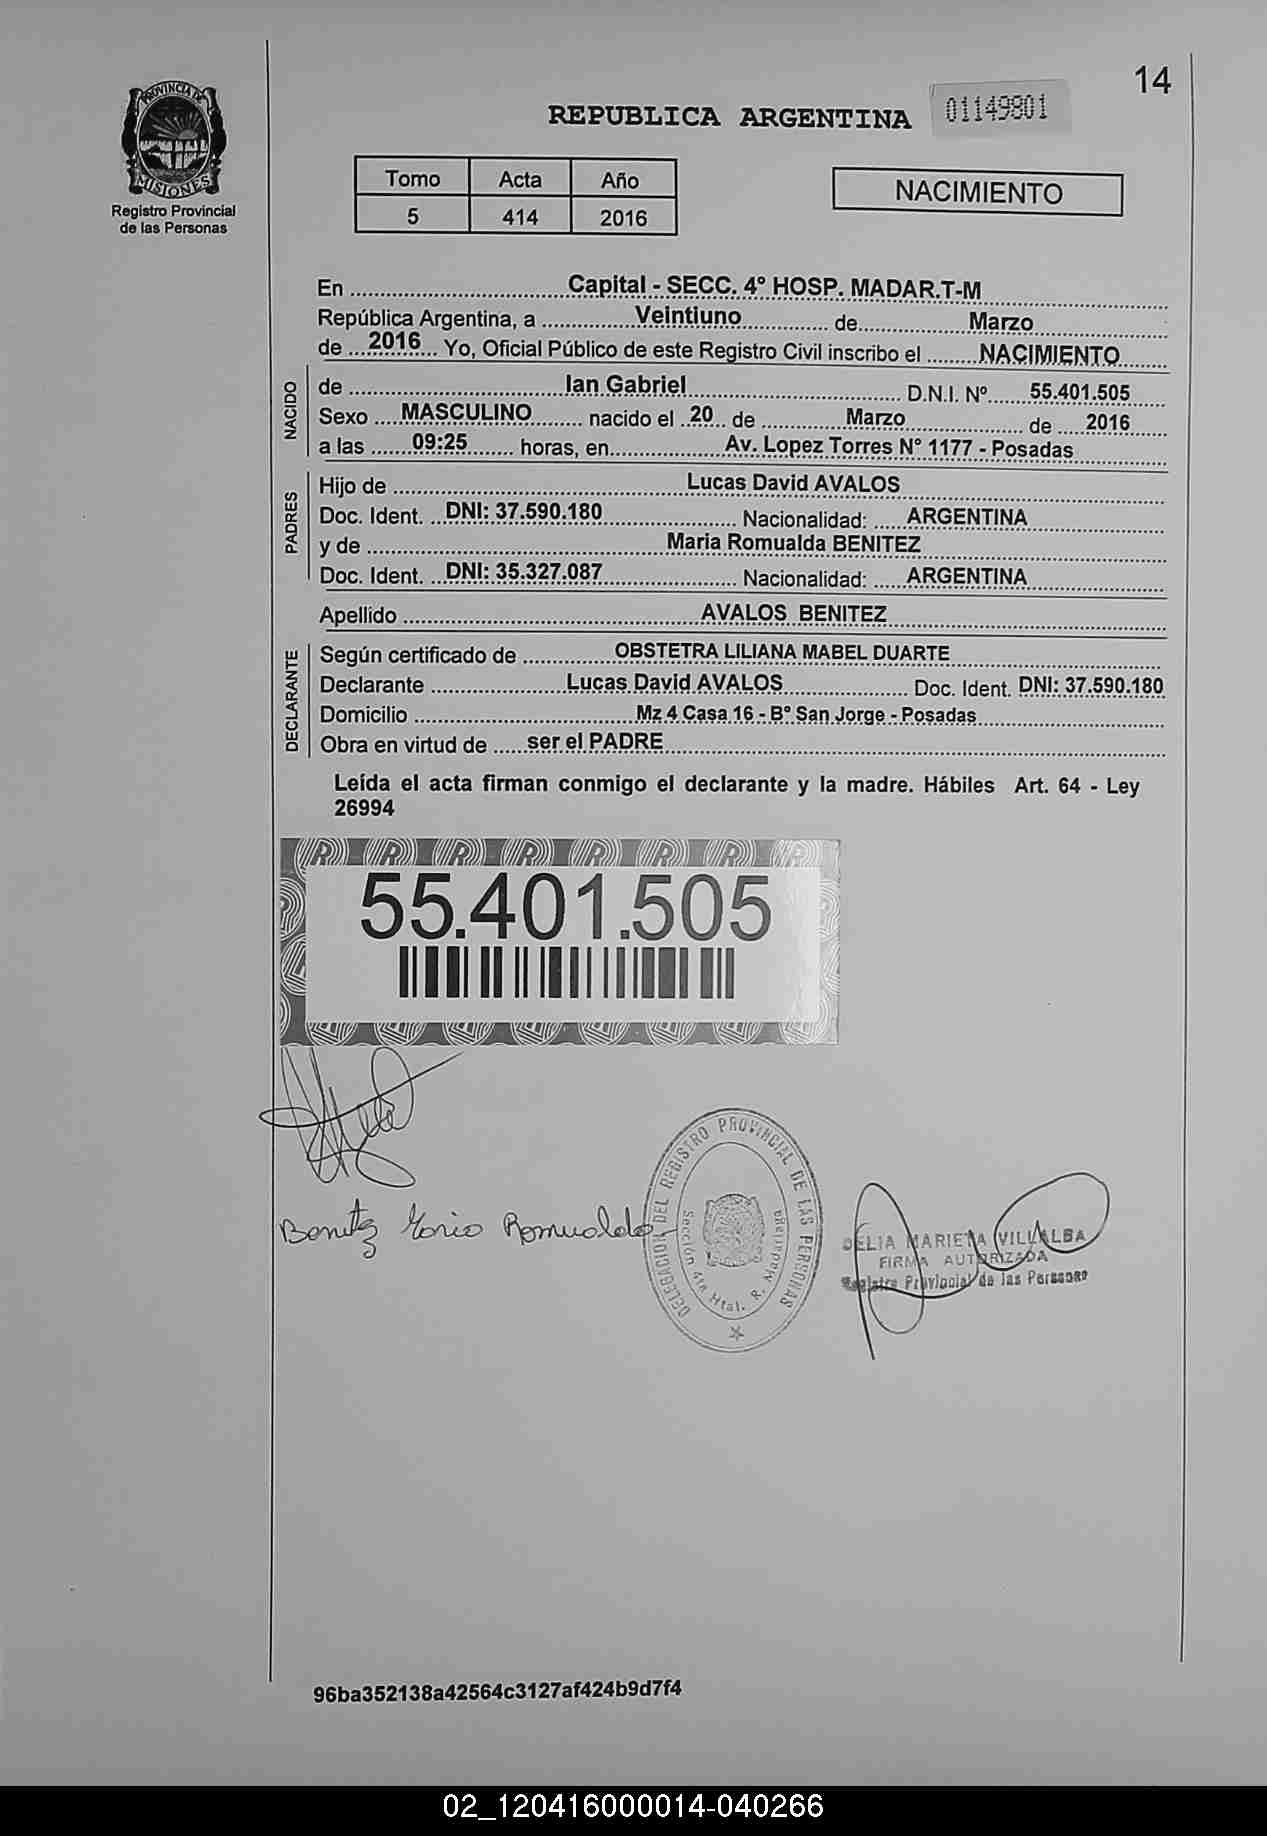 14
PROVINCIA DE
MISIONES
Registro Provincial
de las Personas
REPUBLICA ARGENTINA
01149801
Tomo Acta Año
5 414 2016
NACIMIENTO
En Capital - SECC. 4° HOSP. MADAR.T-M
República Argentina, a Veintiuno de Marzo
de 2016 Yo, Oficial Público de este Registro Civil inscribo el NACIMIENTO
NACIDO
de Ian Gabriel D.N.I. Nº 55.401.505
Sexo MASCULINO nacido el 20 de Marzo de 2016
a las 09:25 horas, en Av. Lopez Torres N° 1177 - Posadas
PADRES
Hijo de Lucas David AVALOS
Doc. Ident. DNI: 37.590.180 Nacionalidad: ARGENTINA
y de Maria Romualda BENITEZ
Doc. Ident. DNI: 35.327.087 Nacionalidad: ARGENTINA
Apellido AVALOS BENITEZ
DECLARANTE
Según certificado de OBSTETRA LILIANA MABEL DUARTE
Declarante Lucas David AVALOS Doc. Ident. DNI: 37.590.180
Domicilio Mz 4 Casa 16 - B° San Jorge - Posadas
Obra en virtud de ser el PADRE
Leída el acta firman conmigo el declarante y la madre. Hábiles Art. 64 - Ley
26994
55.401.505
Benitez Maria Romualda
DELEGACION DEL REGISTRO PROVINCIAL DE LAS PERSONAS
Sección 4ta Htal. R. Madariaga
DELIA MARIETA VILLALBA
FIRMA AUTORIZADA
Registro Provincial de las Personas
96ba352138a42564c3127af424b9d7f4
02_120416000014-040266